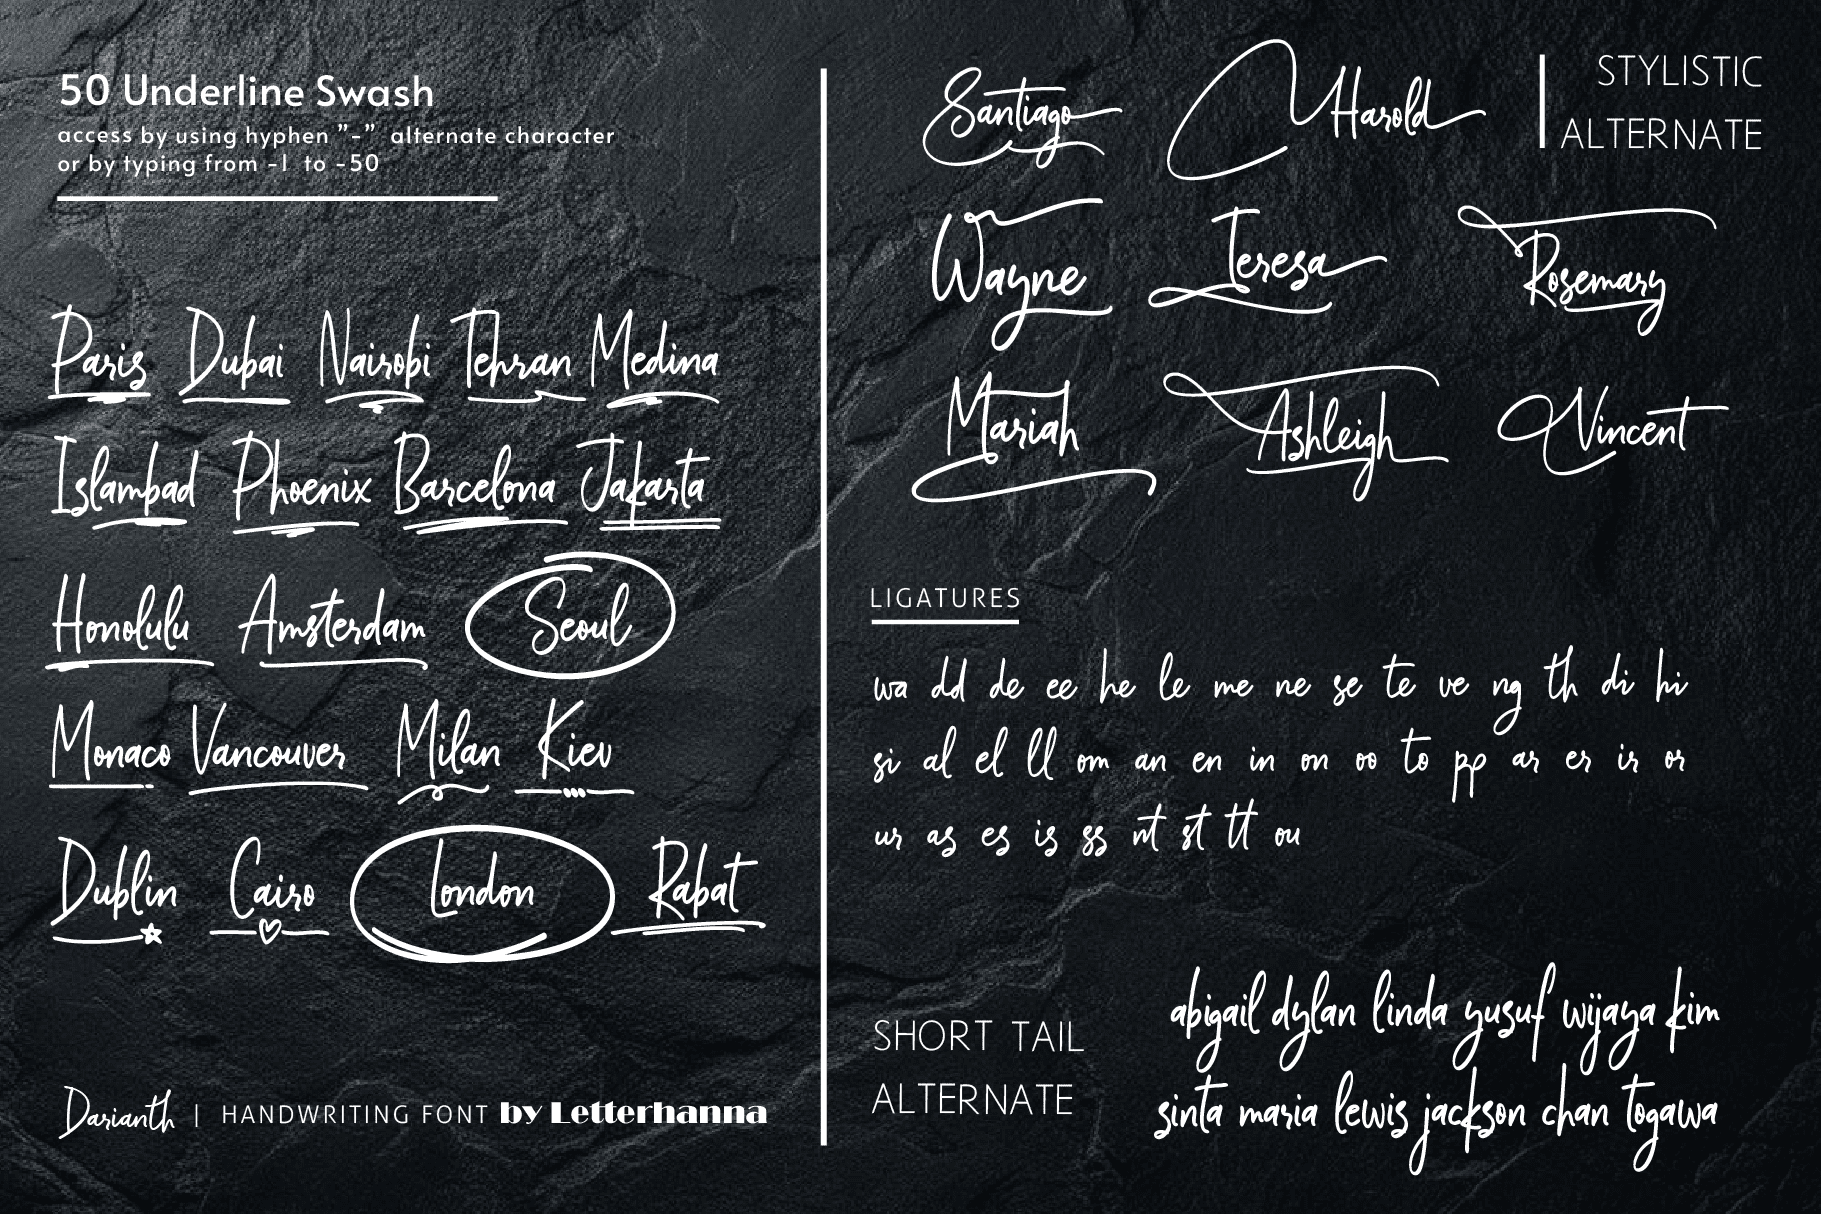 50 Underline Swash
access by using hyphen "-" alternate character
or by typing from -1 to -50
Paris Dubai Nairobi Tehran Medina
Islambad Phoenix Barcelona Jakarta
Honolulu Amsterdam Seoul
Monaco Vancouver Milan Kiev
Dublin Cairo London Rabat
Darianth | HANDWRITING FONT by Letterhanna
STYLISTIC
ALTERNATE
Santiago Harold
Wayne Teresa Rosemary
Mariah Ashleigh Vincent
LIGATURES
wa dd de ee he le me ne se te ve ng th di hi
si al el ll om an en in on oo to pp ar er ir or
ur as es is ss nt st tt ou
SHORT TAIL
ALTERNATE
abigail dylan linda yusuf wijaya kim
sinta maria lewis jackson chan togawa